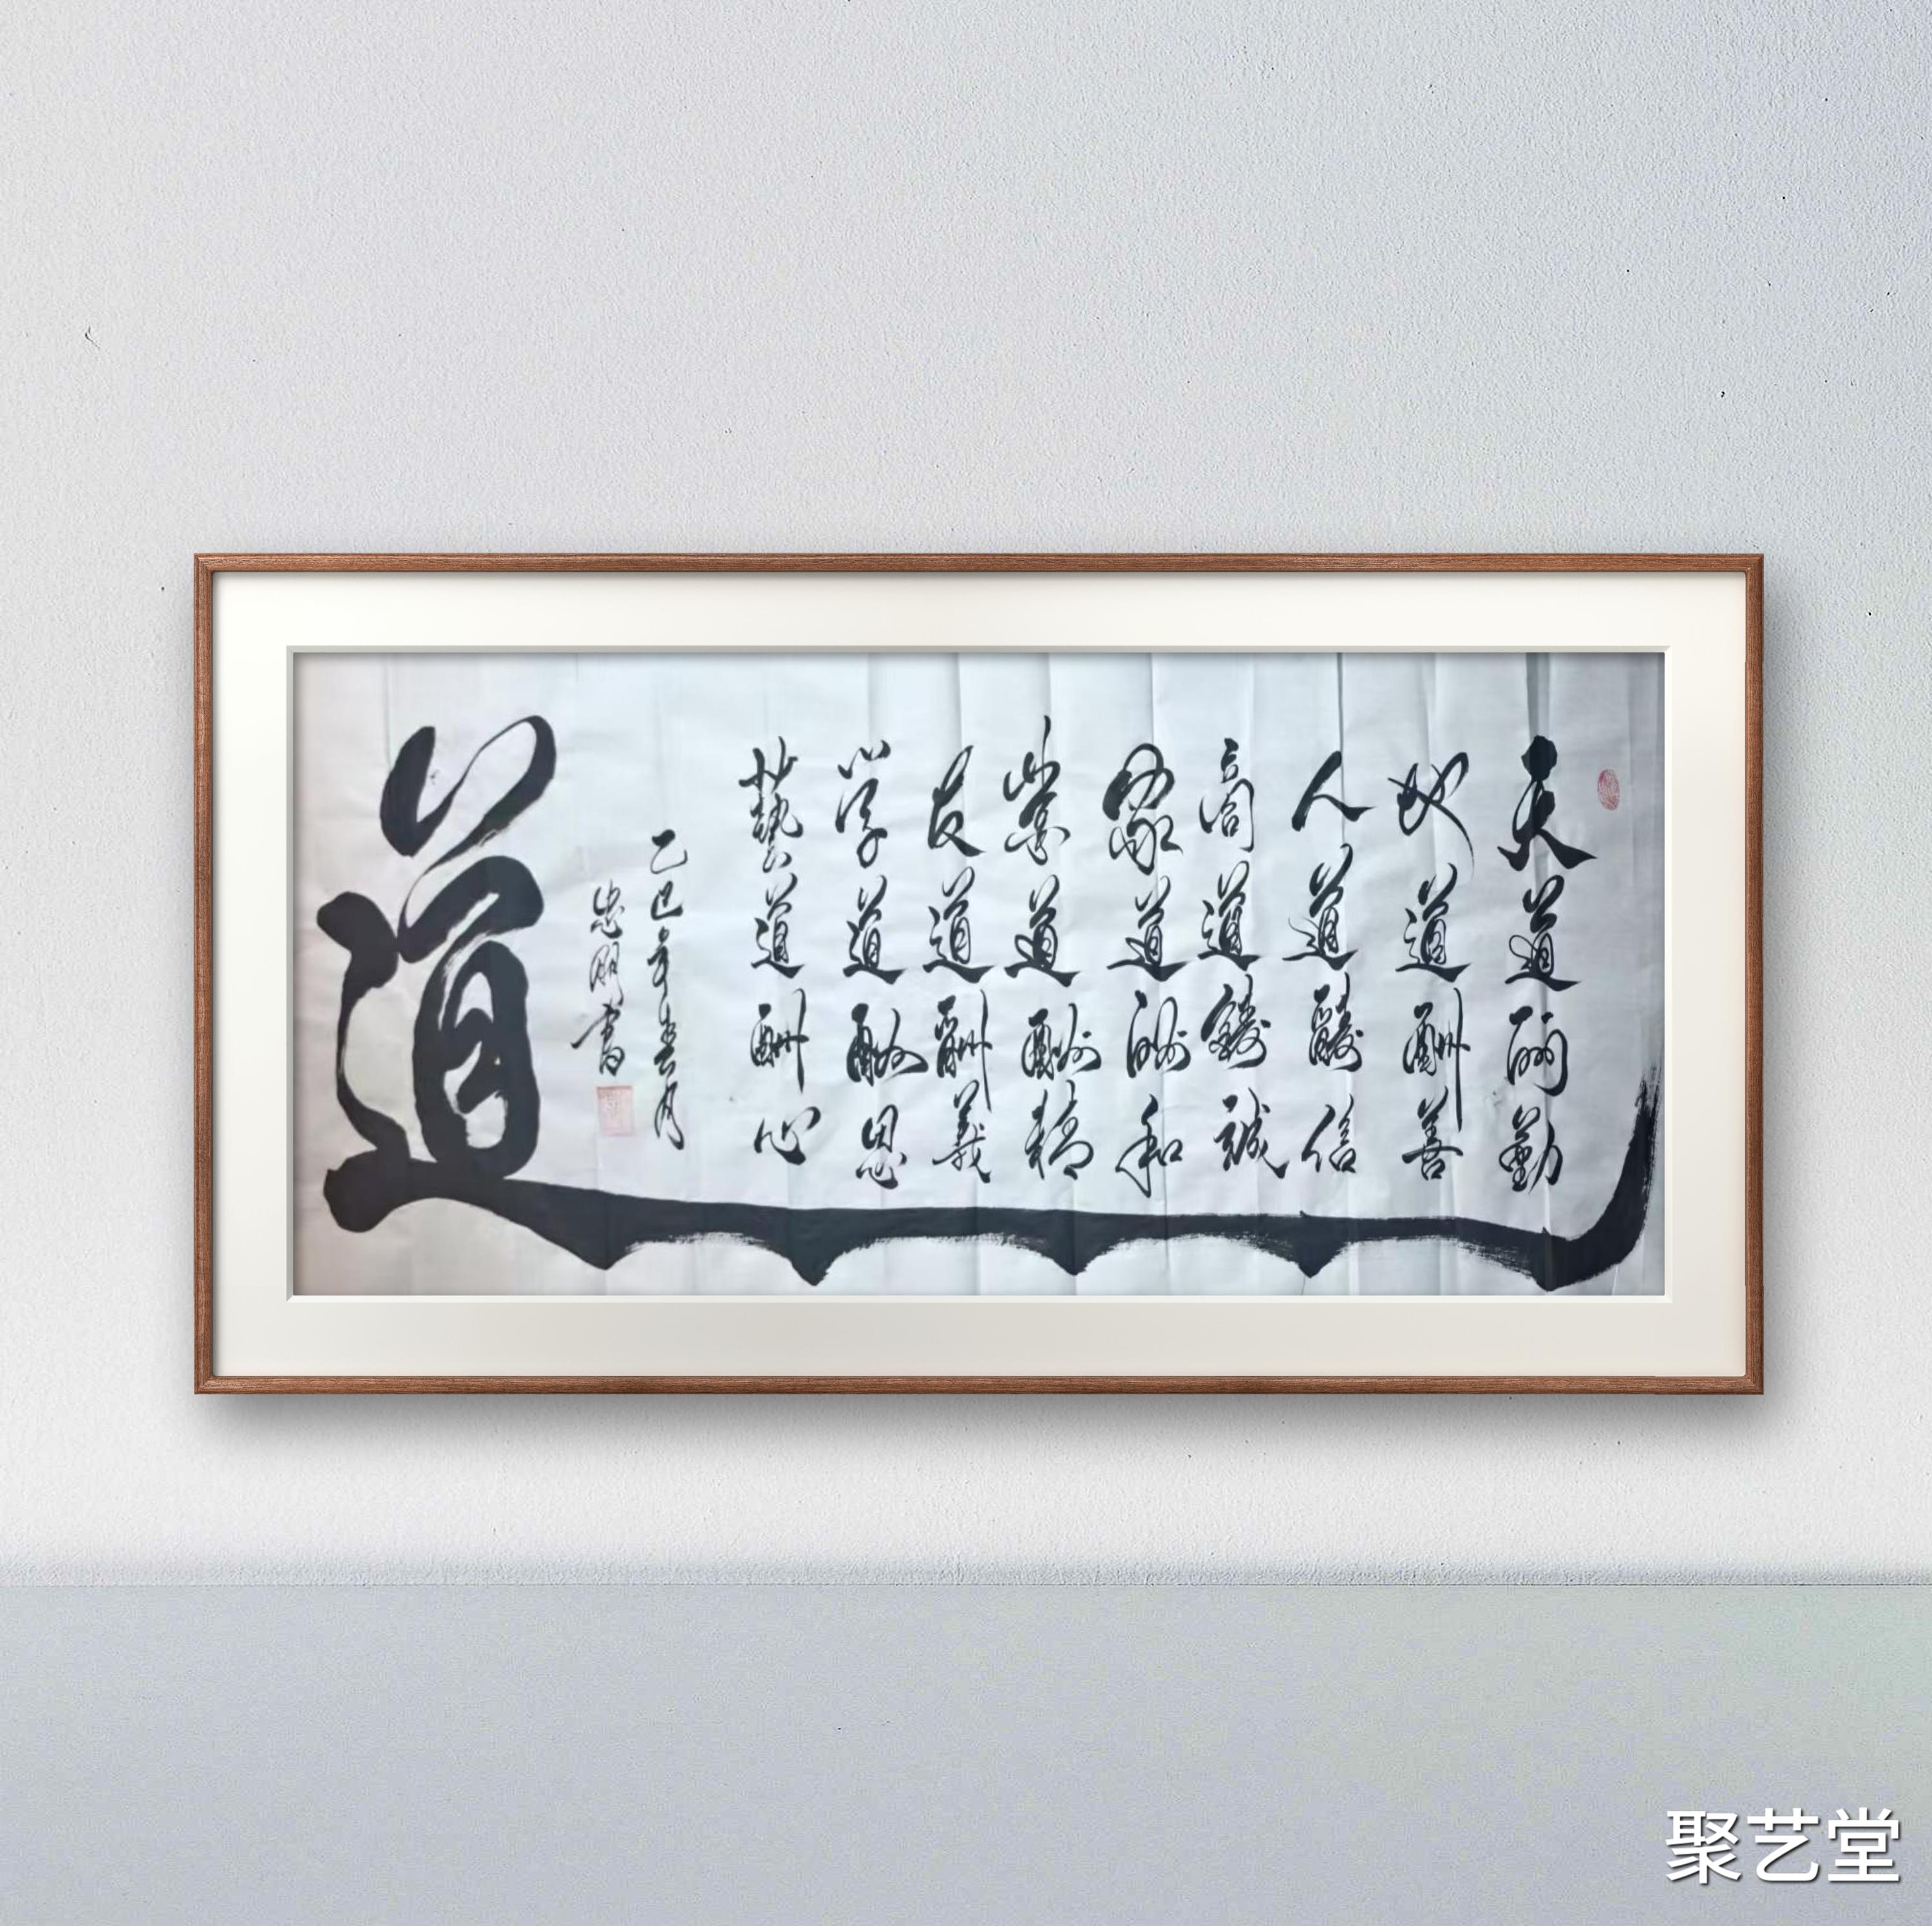 天道酬勤
地道酬善
人道酬信
商道酬誠
家道酬和
業道酬精
友道酬義
学道酬思
藝道酬心
乙巳年春月
忠明書
道
聚艺堂